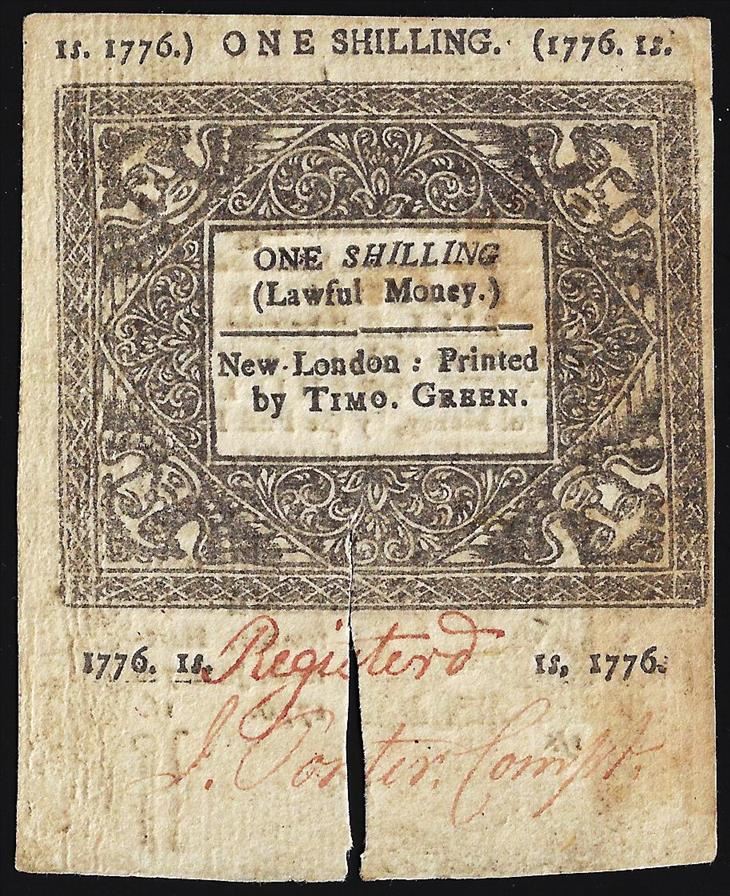 1s. 1776.) ONE SHILLING. (1776. 1s.
ONE SHILLING
(Lawful Money.)
New-London : Printed
by TIMO. GREEN.
1776. 1s. Registerd 1s, 1776.
J. Porter. Compt.